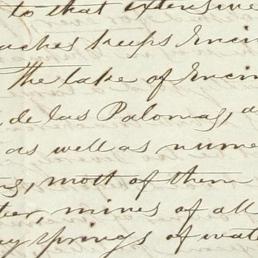 to that extensive
aches keeps Encin
The lake of Encin
de las Palomas, a
as well as nume
ing, most of them
ter, mines of all
y springs of wate